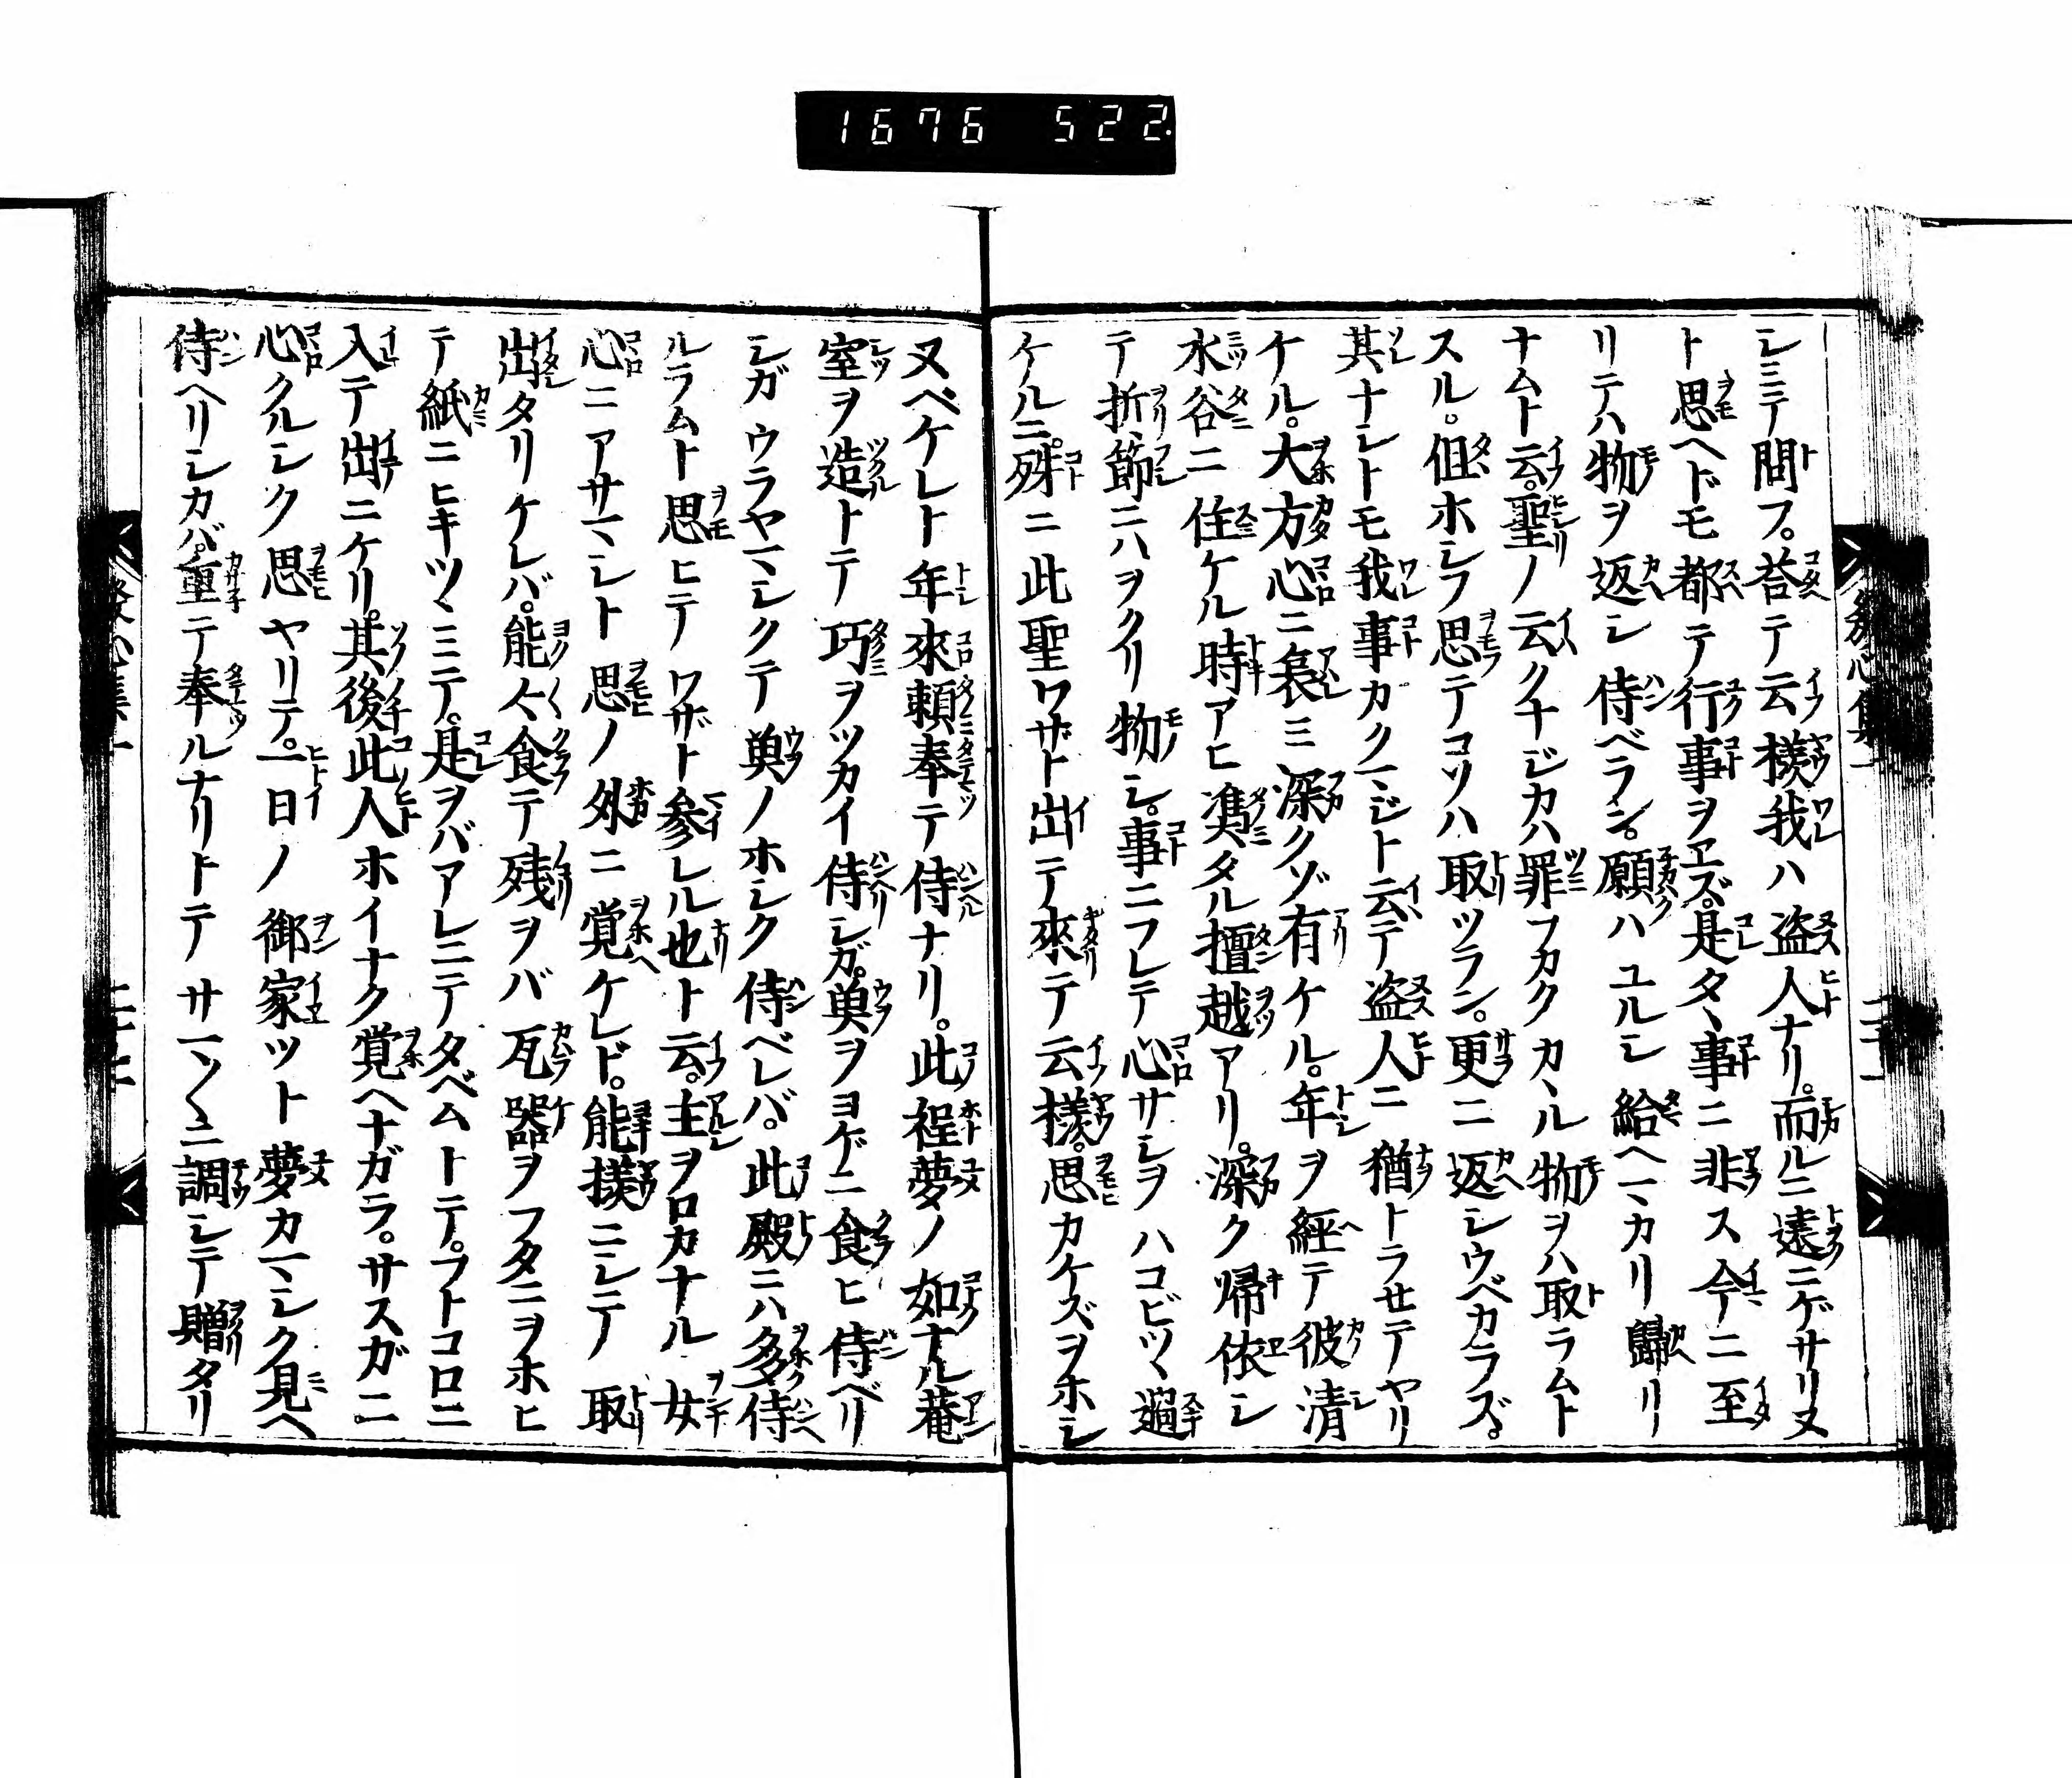 1676 522.
シミテ間フ。荅テ云樣我ハ盗人ナリ。而ルニ遠ニゲサリヌ
ト思ヘドモ都テ行事ヲエズ。是タヽ事ニ非ス今ニ至
リテハ物ヲ返シ侍ベラン。願ハユルシ給ヘマカリ歸リ
ナムト云。聖ノ云クナジカハ罪フカクカヽル物ヲハ取ラムト
スル。但ホシフ思テコソハ取ツラン。更ニ返シウベカラズ。
其ナシトモ我事カクマジト云テ盗人ニ猶トラセテヤリ
ケル。大方心ニ哀ミ深クゾ有ケル。年ヲ經テ彼清
水谷ニ住ケル時アヒ馮タル擅越アリ。深ク帰依シ
テ折節ニハヲクリ物シ。事ニフレテ心サシヲハコビツヽ過
ケルニ。殊ニ此聖ワザト出テ來テ云樣。思カケズヲホシ
ヌベケレト年來頼奉テ侍ナリ。此程夢ノ如ナル菴
室ヲ造トテ巧ヲツカイ侍シガ。菓ヲヨゲニ食ヒ侍ベリ
シガウラヤマシクテ菓ノホシク侍ベレバ。此殿ニハ多侍
ルラムト思ヒテワザト参レル也ト云。主ヲロカナル女
心ニアサマシト思ノ外ニ覚ケレド。能樣ニシテ取
出タリケレバ。能々食テ残ヲバ瓦器ヲフタニヲホヒ
テ紙ニヒキツヽミテ。是ヲバアレニテタベムトテ。フトコロニ
入テ出ニケリ。其後此人ホイナク覚ヘナガラ。サスガニ
心クルシク思ヤリテ。一日ノ御家ツト夢カマシク見ヘ
侍ヘリシカバ。重テ奉ルナリトテサマ〱ニ調シテ贈タリ
發心集一